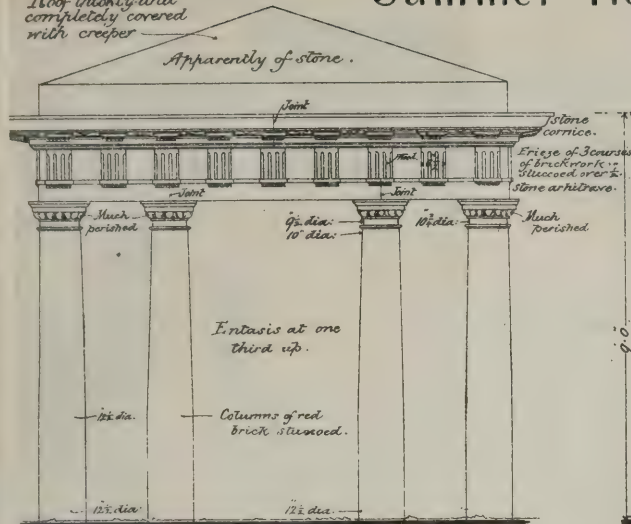 Roof thickly and
completely covered
with creeper
Summer
Apparently of stone.
Joint
stone
cornice.
Frieze of 3 courses
of brickwork
stuccoed over
stone arhitrave.
Joint
Joint
Much
perished
9½" dia:
10" dia:
dia:
Much
perished
Entasis at one
third up.
dia.
Columns of red
brick stuccoed.
12½" dia:
12½" dia: